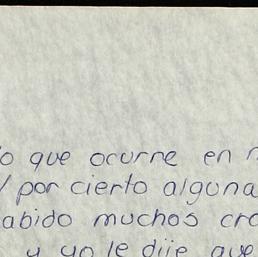 o que ocurre en
por cierto alguna
abido muchos cro
y yo le dije que